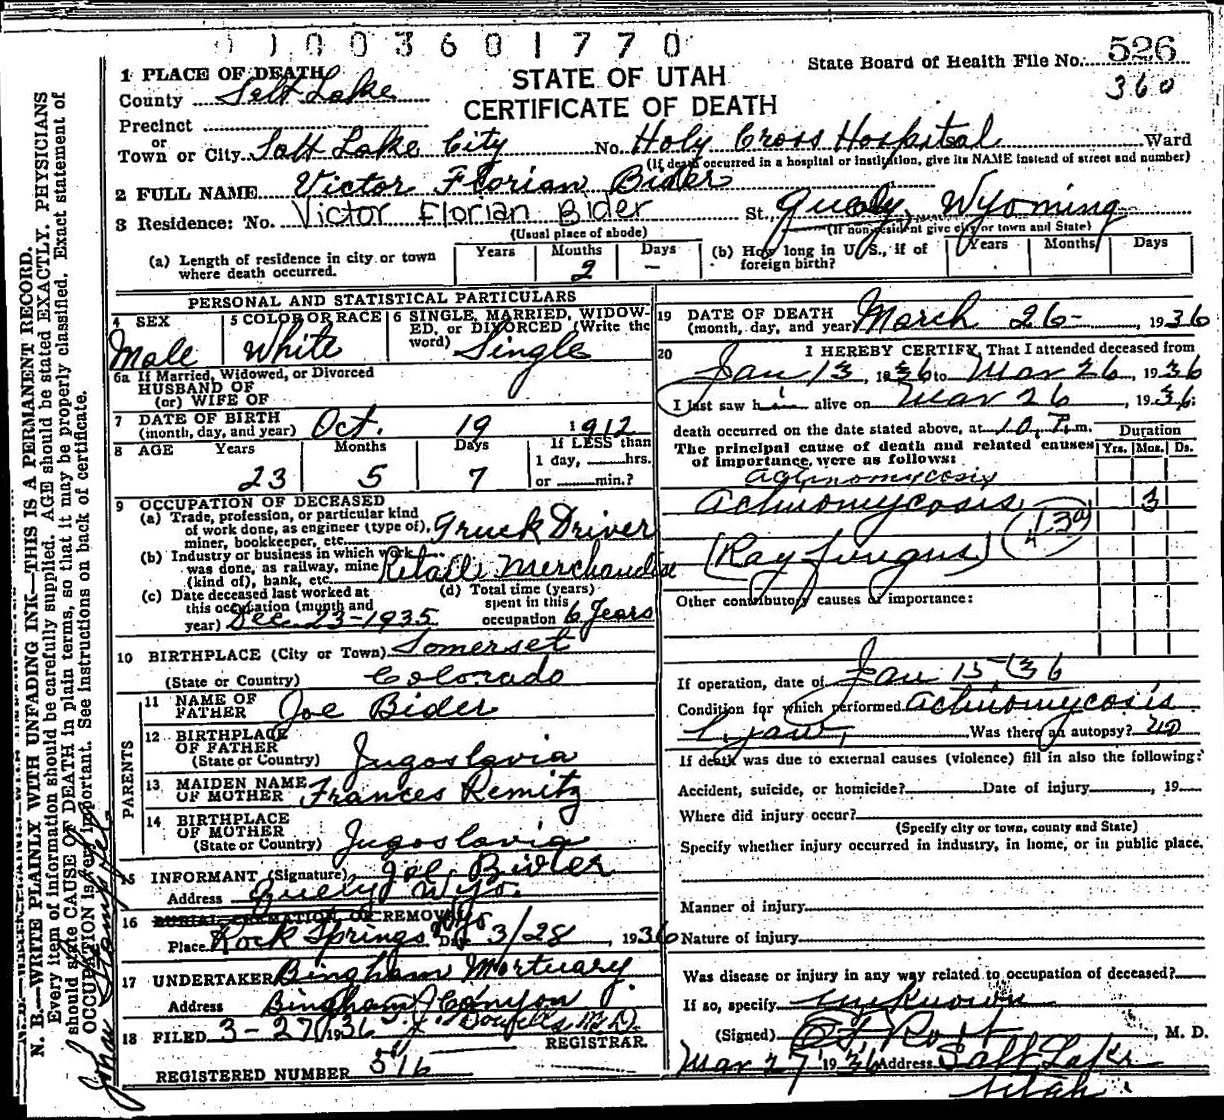 0 1 0 0 3 6 0 1 7 7 0
State Board of Health File No. 526
360
STATE OF UTAH
CERTIFICATE OF DEATH
1 PLACE OF DEATH
County Salt Lake
Precinct
or
Town or City Salt Lake City No. Holy Cross Hospital Ward
(If death occurred in a hospital or institution, give its NAME instead of street and number)
2 FULL NAME Victor Florian Bider
3 Residence: No. Victor Florian Bider St., Wyoming
(Usual place of abode) (If non-resident give city or town and State)
(a) Length of residence in city or town where death occurred. Years Months 2 Days –
(b) How long in U.S., if of foreign birth? Years Months Days
PERSONAL AND STATISTICAL PARTICULARS
4 SEX Male
5 COLOR OR RACE White
6 SINGLE, MARRIED, WIDOWED, or DIVORCED (Write the word) Single
6a If Married, Widowed, or Divorced
HUSBAND OF
(or) WIFE OF
7 DATE OF BIRTH
(month, day, and year) Oct. 19 1912
8 AGE Years 23 Months 5 Days 7
If LESS than
1 day, hrs.
or min.?
9 OCCUPATION OF DECEASED
(a) Trade, profession, or particular kind
of work done, as engineer (type of),
miner, bookkeeper, etc. Truck Driver
(b) Industry or business in which work
was done, as railway, mine
(kind of), bank, etc. Retail Merchandise
(c) Date deceased last worked at
this occupation (month and
year) Dec 23-1935
(d) Total time (years)
spent in this
occupation 6 Years
10 BIRTHPLACE (City or Town) Somerset
(State or Country) Colorado
PARENTS
11 NAME OF
FATHER Joe Bider
12 BIRTHPLACE
OF FATHER
(State or Country) Jugoslavia
13 MAIDEN NAME
OF MOTHER Frances Remitz
14 BIRTHPLACE
OF MOTHER
(State or Country) Jugoslavia
15 INFORMANT (Signature) Joe Bider
Address Wyo.
16 BURIAL, CREMATION, OR REMOVAL
Place Rock Springs Wyo Date 3/28, 1936
17 UNDERTAKER Bingham Mortuary
Address Bingham Canyon
18 FILED 3-27 1936 M.D.
REGISTRAR.
REGISTERED NUMBER 516
19 DATE OF DEATH
(month, day, and year) March 26-, 1936
20 I HEREBY CERTIFY, That I attended deceased from
Jan 13, 1936 to Mar 26, 1936
I last saw him alive on Mar 26, 1936;
death occurred on the date stated above, at 10 P.m.
The principal cause of death and related causes
of importance were as follows:
Duration
Yrs. Mos. Ds.
actinomycosis
Actinomycosis 3
(Ray fungus)
Other contributory causes of importance:
If operation, date of Jan 15, 36
Condition for which performed actinomycosis
L. jaw, Was there an autopsy? no
If death was due to external causes (violence) fill in also the following:
Accident, suicide, or homicide? Date of injury , 19
Where did injury occur?
(Specify city or town, county and State)
Specify whether injury occurred in industry, in home, or in public place.
Manner of injury
Nature of injury
Was disease or injury in any way related to occupation of deceased?
If so, specify unknown
(Signed) , M. D.
Mar 27 1936 Address Salt Lake
Utah
N. B.—WRITE PLAINLY WITH UNFADING INK—THIS IS A PERMANENT RECORD.
Every item of information should be carefully supplied. AGE should be stated EXACTLY. PHYSICIANS
should state CAUSE OF DEATH in plain terms, so that it may be properly classified. Exact statement of
OCCUPATION is very important. See instructions on back of certificate.